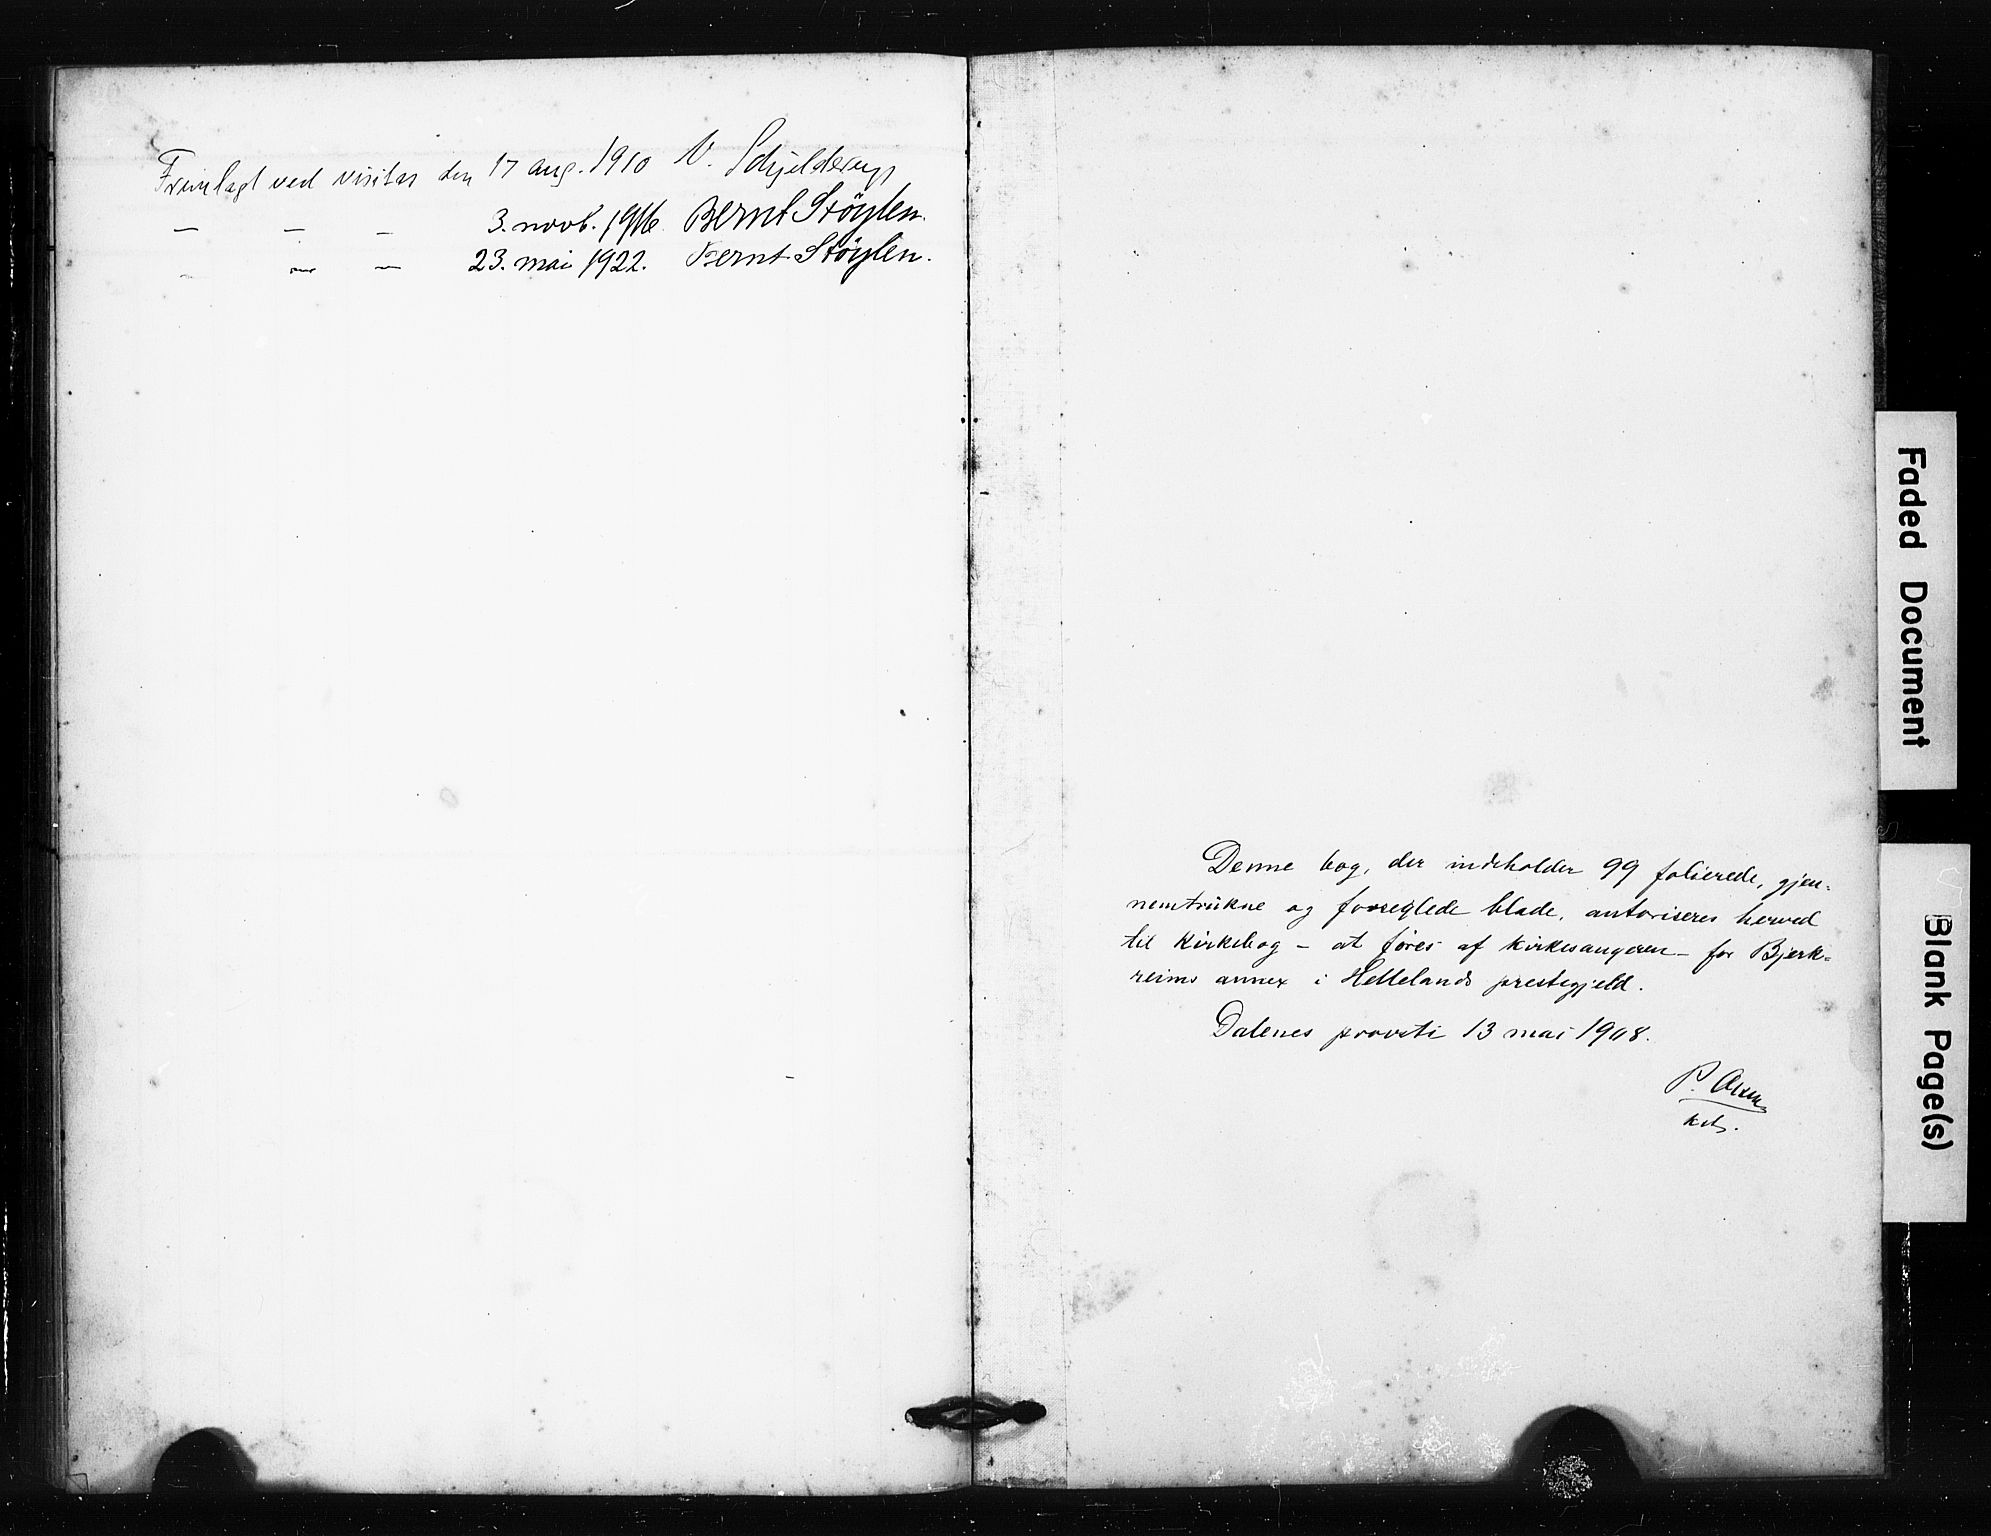 Fremlagt ved visitas den 17 aug. 1910 V. Schjelderup
— — — 3. novb. 1916 Bernt Støylen.
— — — 23. mai 1922. Bernt Støylen.
Denne bog, der indeholder 99 folierede, gjen-
nemtrukne og forseglede blade, autoriseres herved
til kirkebog – at føres af kirkesangeren – for Bjerk-
reims annex i Hellelands prestegjeld.
Dalenes provsti 13 mai 1908.
P. Olsen
kst.
Faded Document
Blank Page(s)